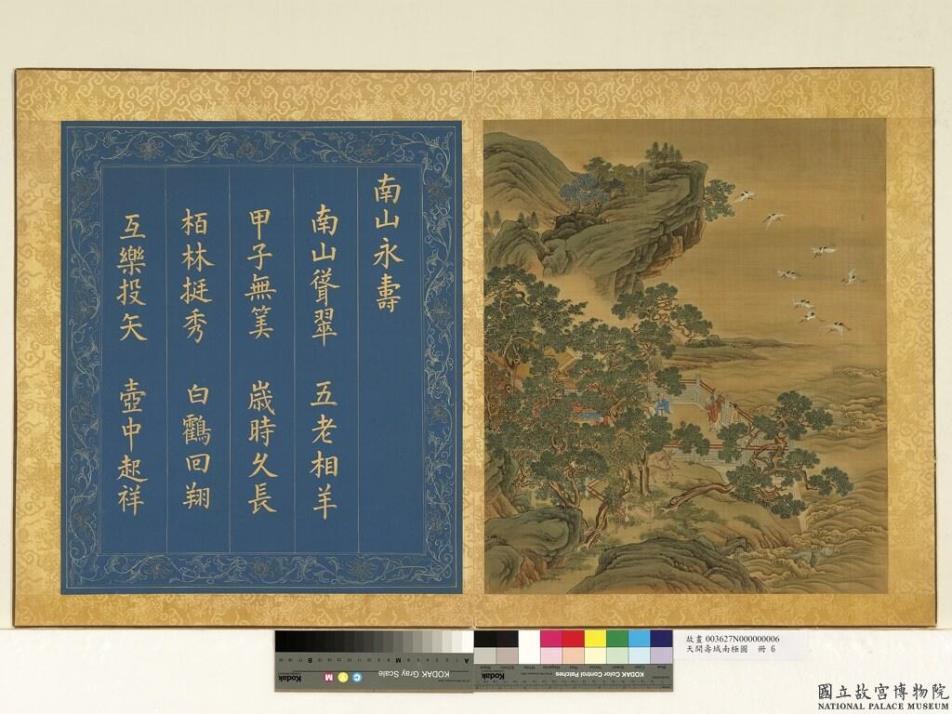 南山永壽
南山聳翠 五老相羊
甲子無筭 歲時久長
栢林挺秀 白鸖回翔
互樂投矢 壺中起祥
KODAK Gray Scale
Kodak
A
M
B
C
Y
M
KODAK Color Control Patches
Kodak
故畫 003627N000000006
天開壽域南極圖 冊 6
國立故宮博物院
NATIONAL PALACE MUSEUM